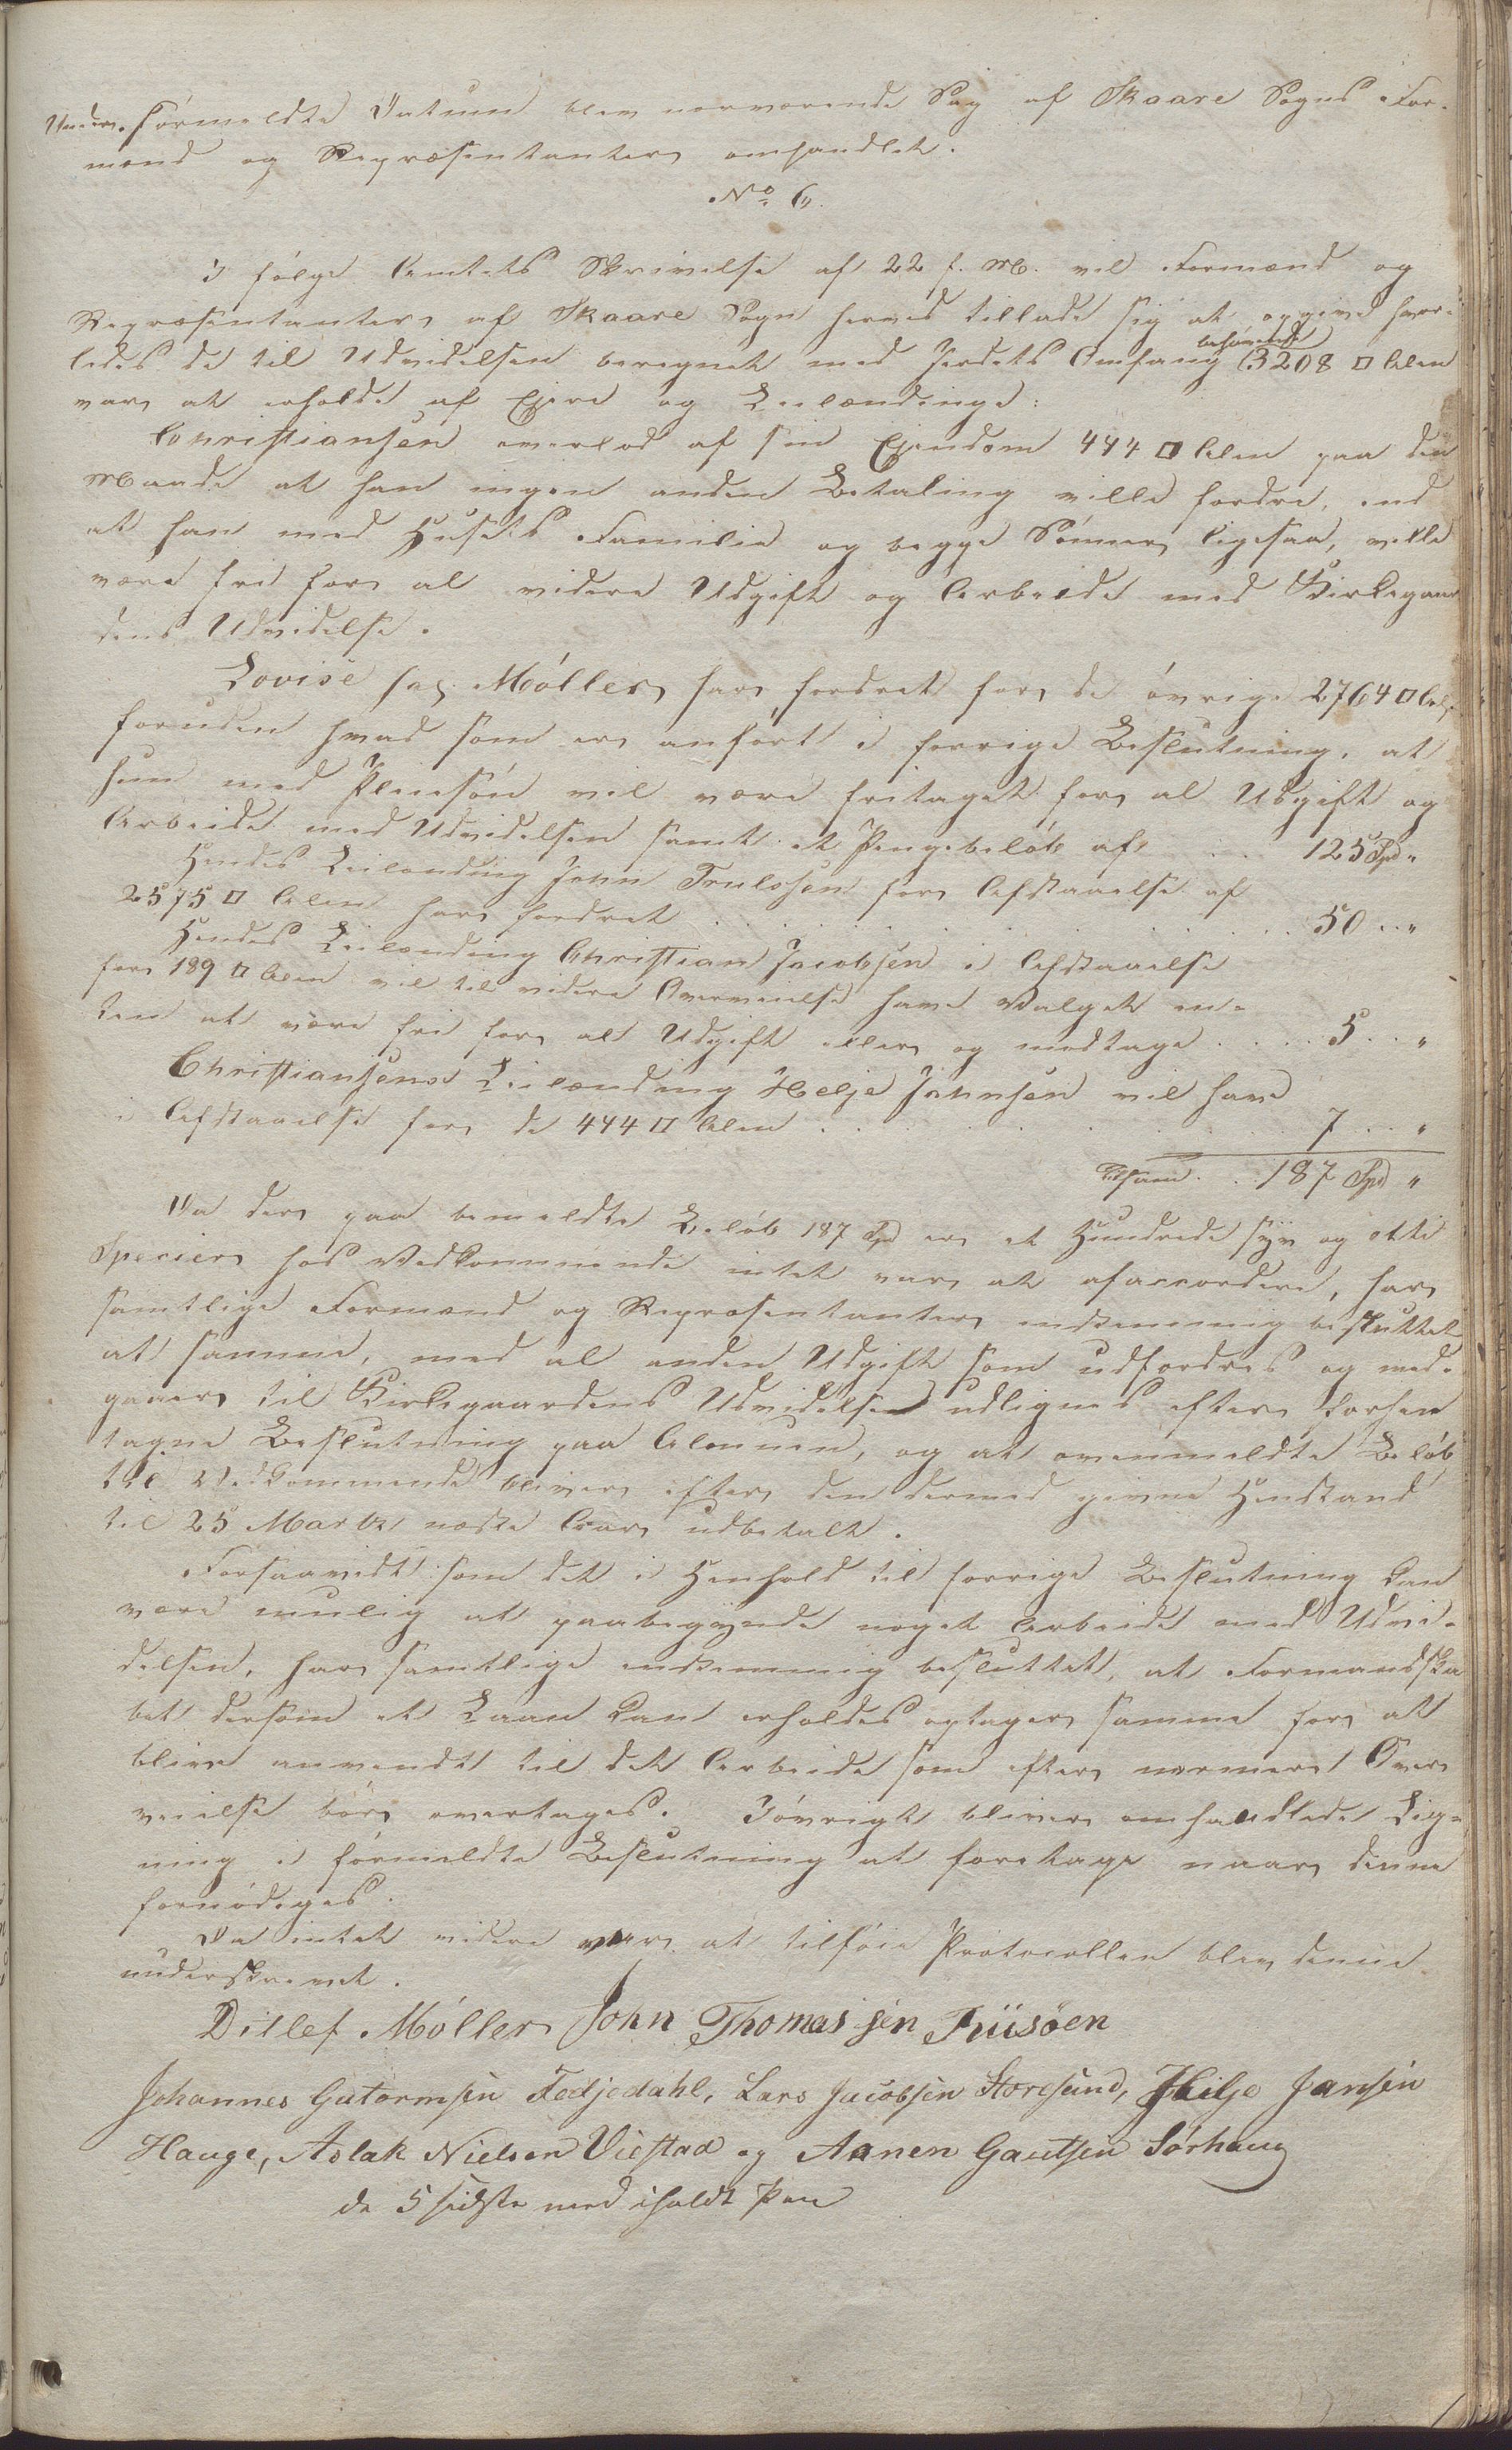 Under Formeldte Datum blev nærværende Sag af Skaare Sogns For-
mænd og Repræsentanter omhandlet.
No. 6.
I følge Amtets Skrivelse af 22 f. M. vil Formænd og
Repræsentanter af Skaare Sogn herved tillade sig at opgive hvor-
ledes de til Udvidelsen beregnet med Jordets Omfang behøvende 3208 □ Alen
var at erholde af Eiere og Leilændinge:
Christiansen overlod af sin Eiendom 444 □ Alen paa den
Maade at han ingen anden Betaling ville fordre, end
at han med Husets Familie og begge Sønner ligesaa, ville
være fri for al videre Udgift og Arbeide med Kirkegaar
dens Udvidelse.
Lovise sal. Møller har fordret for de øvrige 2764 □ Al.
foruden hvad som er anført i forrige Beslutning, at
hun med Pleiesøn vil være fritaget for al Udgift og
Arbeide med Udvidelsen samt et Pengebeløb af . . . 125 Spd "
Hendes Leilænding John Trulssen for Afstaaelse af
2575 □ Alen har fordret . . . 50 . . "
Hendes Leilænding Christian Jacobsen i Afstaaelse
for 189 □ Alen vil til videre Overveielse have Valget en-
ten at være fri for al Udgift eller og modtage . . . . 5 . . "
Christiansens Leilænding Helje Johnsen vil have
i Afstaaelse for de 444 □ Alen . . . 7 . . "
Tilsam. . . 187 Spd "
Da der paa bemeldte Beløb 187 Spd er et Hundrede syv og otti
Specier hos Vedkommende intet var at afaccordere, har
samtlige Formænd og Repræsentanter eenstemmig besluttet
at samme, med al anden Udgift som udfordres og med-
gaaer til Kirkegaardens Udvidelse udlignes efter forhen
tagne Beslutning paa Almuen, og at ovenmeldte Beløb
til Vedkommende bliver efter den dermed givne Henstand
til 25 Marts næste Aar udbetalt.
Forsaavidt som det i Henhold til forrige Beslutning kan
være mulig at paabegynde noget Arbeide med Udvi-
delsen, har samtlige eenstemmig besluttet, at Formandska
bet dersom et Laan kan erholdes optager samme for at
blive anvendt til det Arbeide som efter nærmere Over
veielse bør overtages. Iøvrigt bliver omhandlede Lig-
ning i førmeldte Beslutning at foretage naar denne
fornødiges.
Da intet videre var at tilføie Protocollen blev denne
underskrevet.
Ditlef Møller John Thomassen Friisøen
Johannes Gutormsen Fedjedahl, Lars Jacobsen Storesund, Helje Jansen
Hauge, Aslak Nielsen Viestad og Aanen Gautsen Sørhaug
de 5 sidste med iholdt Pen